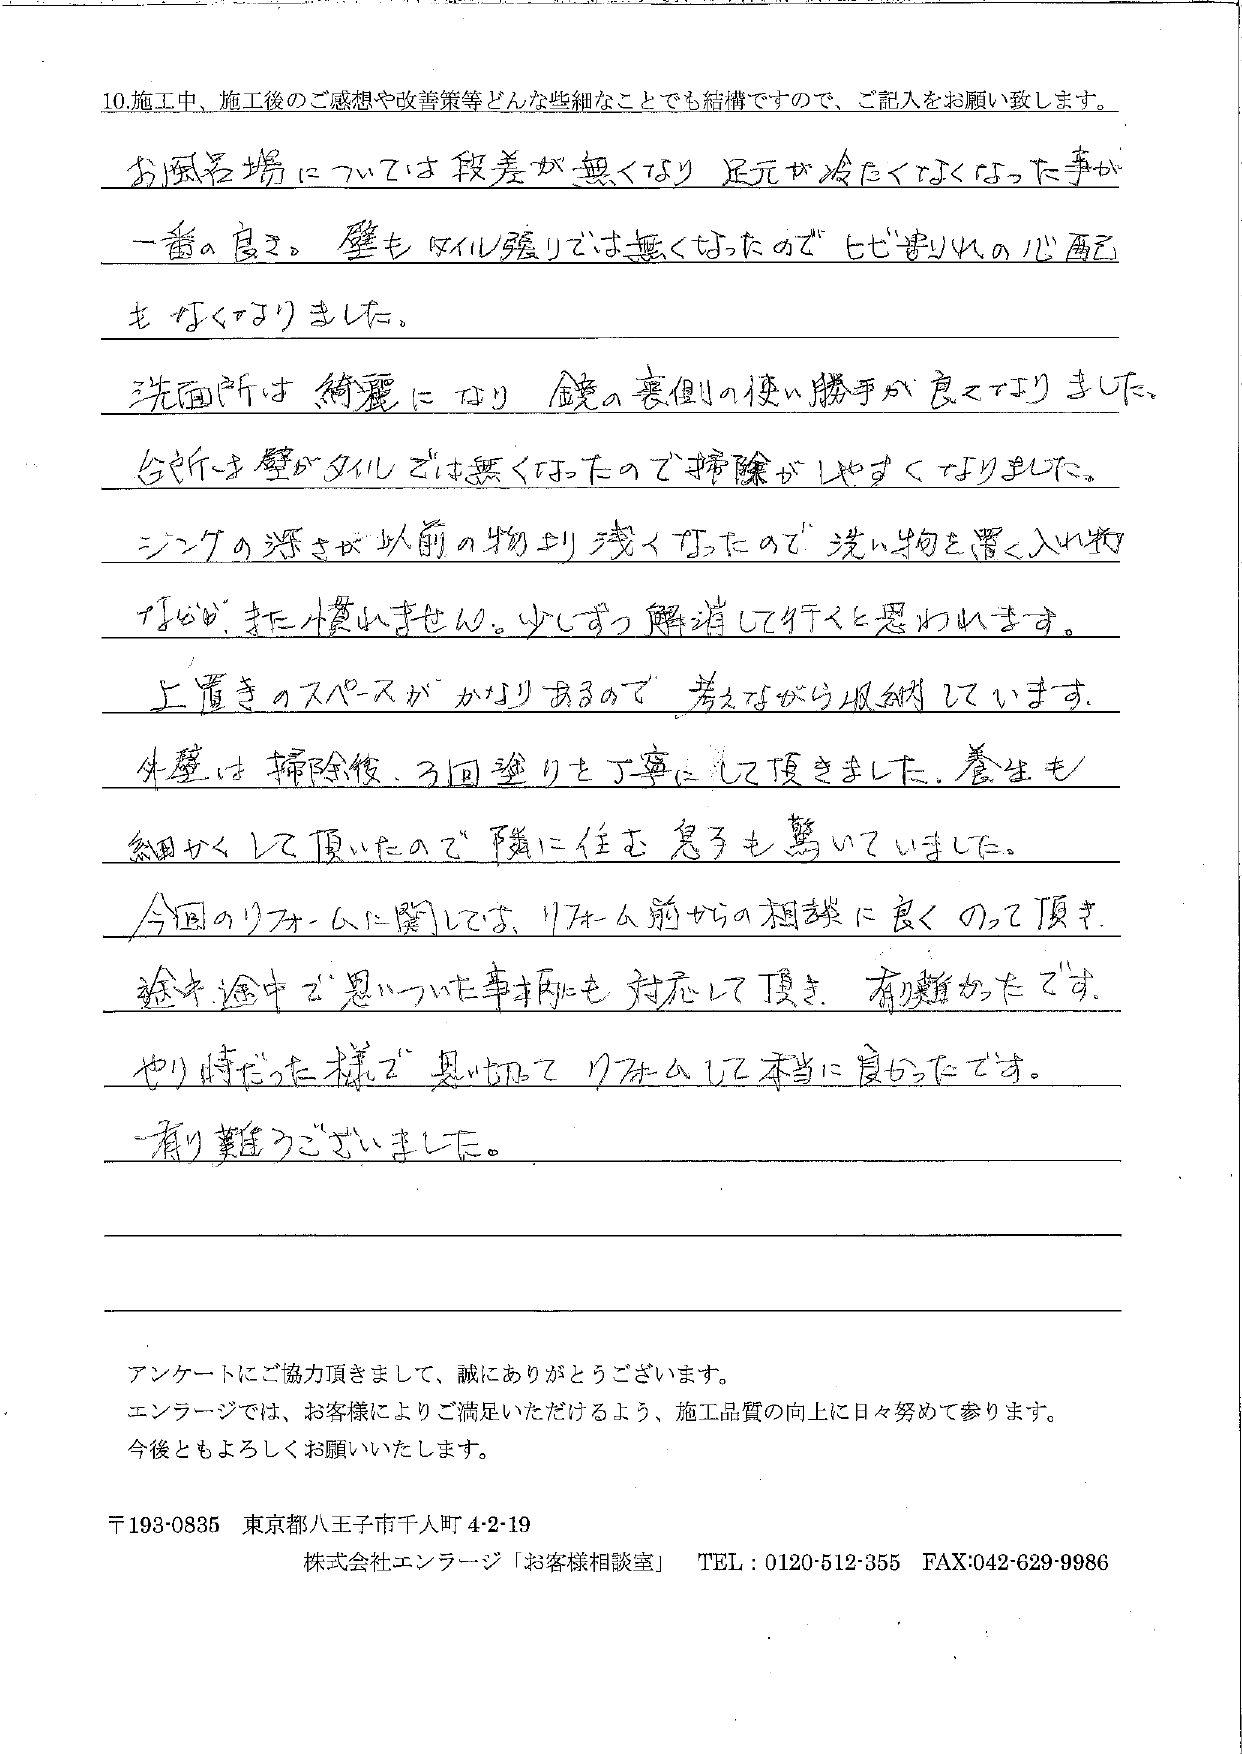 10.施工中、施工後のご感想や改善策等どんな些細なことでも結構ですので、ご記入をお願い致します。
お風呂場については段差が無くなり 足元が冷たくなくなった事が
一番の良さ。 壁もタイル張りでは無くなったので ヒビ割れの心配
も なくなりました。
洗面所は 綺麗に なり 鏡の裏側の使い勝手が 良くなりました。
台所は壁がタイルでは無くなったので掃除がしやすくなりました。
シンクの深さが以前の物より 浅くなったので 洗い物を置く入れ物
などが、まだ慣れません。少しずつ 解消して行くと思われます。
上置きのスペースが かなりあるので 考えながら収納しています.
外壁は掃除後、3回塗りを丁寧にして頂きました. 養生も
細かくして頂いたので 隣に住む 息子も驚いていました。
今回のリフォームに関しては、リフォーム前からの相談に良く のって頂き.
途中途中で思いついた事柄にも 対応して頂き. 有り難かったです.
やり時だった様で 思い切って リフォームして本当に良かったです。
有り難うございました。
アンケートにご協力頂きまして、誠にありがとうございます。
エンラージでは、お客様によりご満足いただけるよう、施工品質の向上に日々努めて参ります。
今後ともよろしくお願いいたします。
〒193-0835 東京都八王子市千人町 4-2-19
株式会社エンラージ「お客様相談室」 TEL：0120-512-355 FAX:042-629-9986